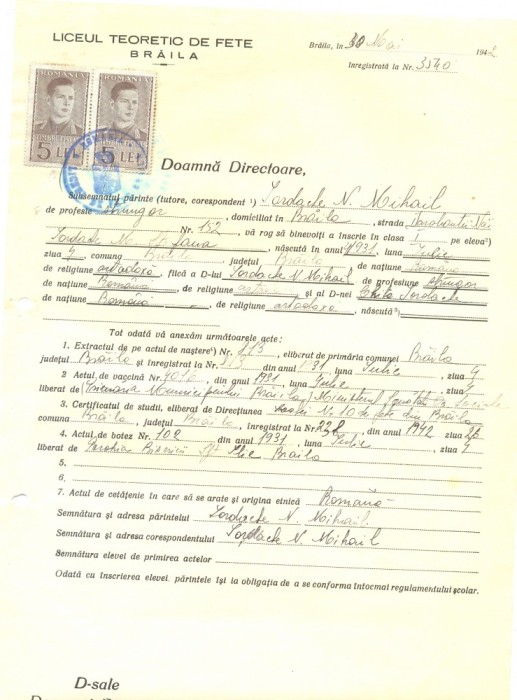 LICEUL TEORETIC DE FETE
BRĂILA
Brăila, în 30 Mai 1942
Înregistrată la Nr. 3540
ROMANIA ROMANIA
5 LEI 5 LEI
Doamnă Directoare,
Subsemnatul părinte (tutore, corespondent ¹) Iordache N. Mihail
de profesie , domiciliat în Brăila, strada
Nr. 132, vă rog să binevoiți a înscrie în clasa I pe eleva²)
Iordache , născută în anul 1931, luna Iulie
ziua 4, comuna Brăila, județul Brăila de națiune Română
de religiune ortodoxă, fiică a D-lui Iordache N Mihail de profesiune
de națiune Română, de religiune și al D-nei Iordache
de națiune Română, de religiune ortodoxă, născută³)
Tot odată vă anexăm următoarele acte:
1. Extractul de pe actul de naștere⁴) Nr. eliberat de primăria comunei Brăila
județul Brăila și înregistrat la Nr. din anul 1931 luna Iulie, ziua 4
2 Actul de vaccină Nr. din anul 1931, luna Iulie, ziua 4
liberat de Municipiului Brăila, Ministerul
3. Certificatul de studii, eliberat de Direcțiunea No 10 de fete din Brăila
comuna Brăila, județul Brăila, înregistrat la Nr. din anul 1942 ziua
4. Actul de botez No. 102 din anul 1931, luna Iulie, ziua 4
liberat de Parohia Bisericii Sf. Ilie Brăila
5.
6.
7. Actul de cetățenie în care să se arate și origina etnică Română
Semnătura și adresa părintelui Iordache N. Mihail
Semnătura și adresa corespondentului Iordache N Mihail
Semnătura elevei de primirea actelor
Odată cu înscrierea elevei, părintele își ia obligația de a se conforma întocmai regulamentului școlar.
D-sale